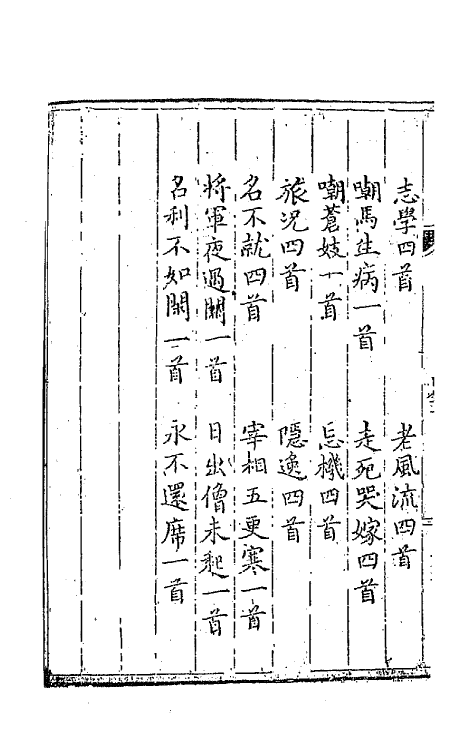 志學四首　老風流四首
嘲馬生病一首　走死哭嫁四首
嘲蒼妓一首　忘機四首
旅況四首　隱逸四首
名不就四首　宰相五更寒一首
將軍夜過關一首　日出僧未起一首
名利不如閑一首　永不還席一首